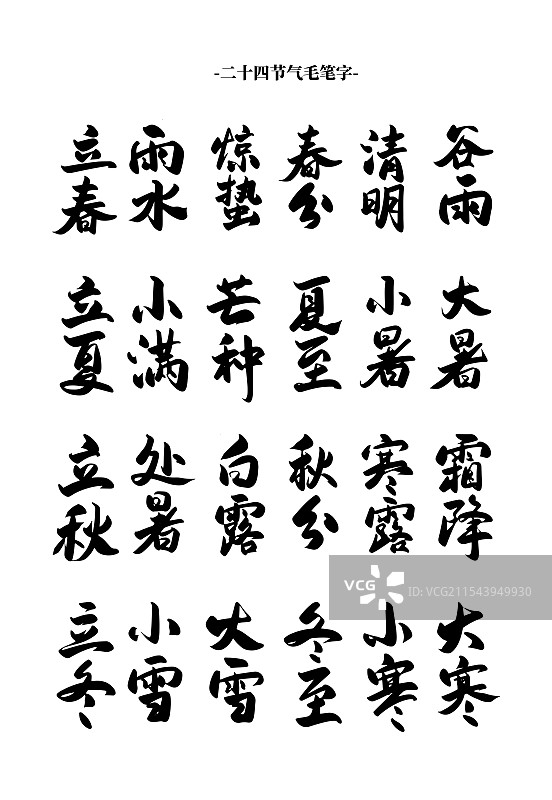 -二十四节气毛笔字-
立春 雨水 惊蛰 春分 清明 谷雨
立夏 小满 芒种 夏至 小暑 大暑
立秋 处暑 白露 秋分 寒露 霜降
VCG ID: VCG211543949930
立冬 小雪 大雪 冬至 小寒 大寒